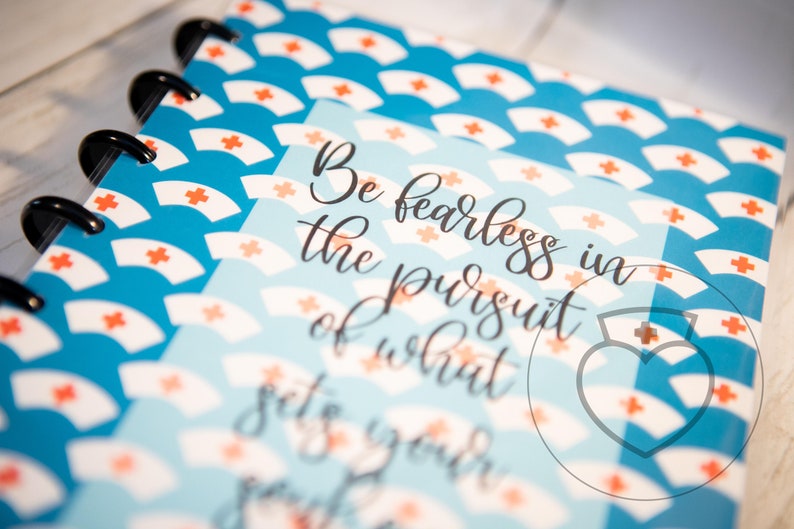 Be fearless in
the pursuit
of what
sets your
soul